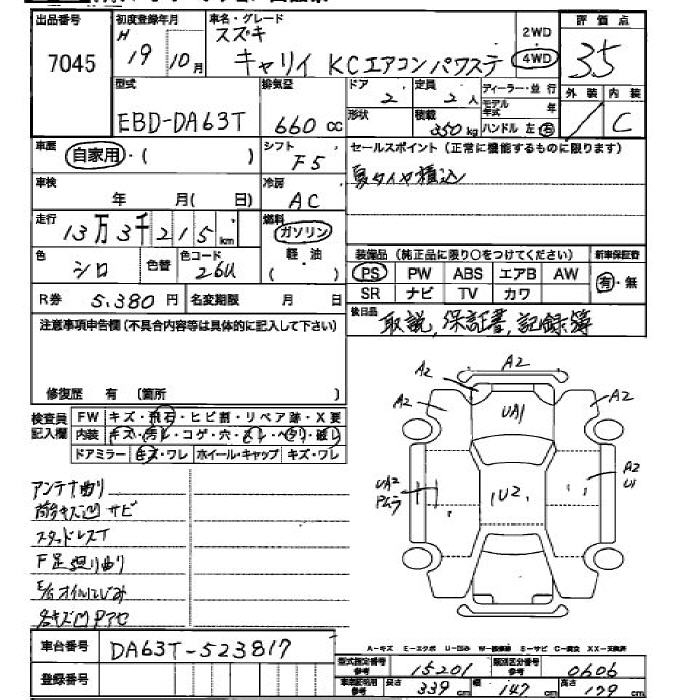 出品番号 初度登録年月 車名・グレード 評価点
7045 H 19年10月 スズキ 2WD 35
キャリイ KCエアコンパワステ 4WD
型式 排気量 ドア 定員 ディーラー・並行 外装 内装
EBD-DA63T 660 cc 2 2人 モデル年式 年 C
形状 積載 350kg ハンドル 左 右
車歴 自家用・( ) シフト F5 セールスポイント(正常に機能するものに限ります)
車検 年 月( 日) 冷房 AC 夏タイヤ積込
走行 13万3千215km 燃料 ガソリン
色 シロ 色替 色コード 26U 軽油 ( ) 装備品(純正品に限り○をつけてください) 新車保証書
PS PW ABS エアB AW 有・無
R券 5,380円 名変期限 月 日 SR ナビ TV カワ
注意事項申告欄(不具合内容等は具体的に記入して下さい) 後日品 取説,保証書,記録簿
修復歴 有(箇所 )
検査員記入欄 FW キズ・飛石・ヒビ割・リペア跡・X要
内装 キズ・汚レ・コゲ・穴・スレ・ヘタリ・破レ
ドアミラー キズ・ワレ ホイール・キャップ キズ・ワレ
A2
A2
A2 A2
UA1
UA2 A2
U2 U1
アンテナ曲り
荷台キズ凹サビ
スタッドレスT
F足廻り曲り
E/Gオイルにじみ
各キズ凹Pアセ
A-キズ E-エクボ U-凹み W-補修跡 S-サビ C-腐食 XX-交換済
車台番号 DA63T-523817
型式指定番号 参考 15201 類別区分番号 参考 0606
登録番号 車庫証明用 参考 長さ 339cm 幅 147cm 高さ 179cm